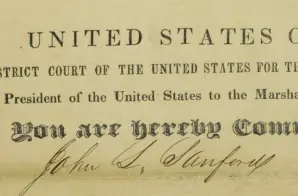 UNITED STATES O
STRICT COURT OF THE UNITED STATES FOR TH
President of the United States to the Marsha
You are hereby Com
John S. Sanford